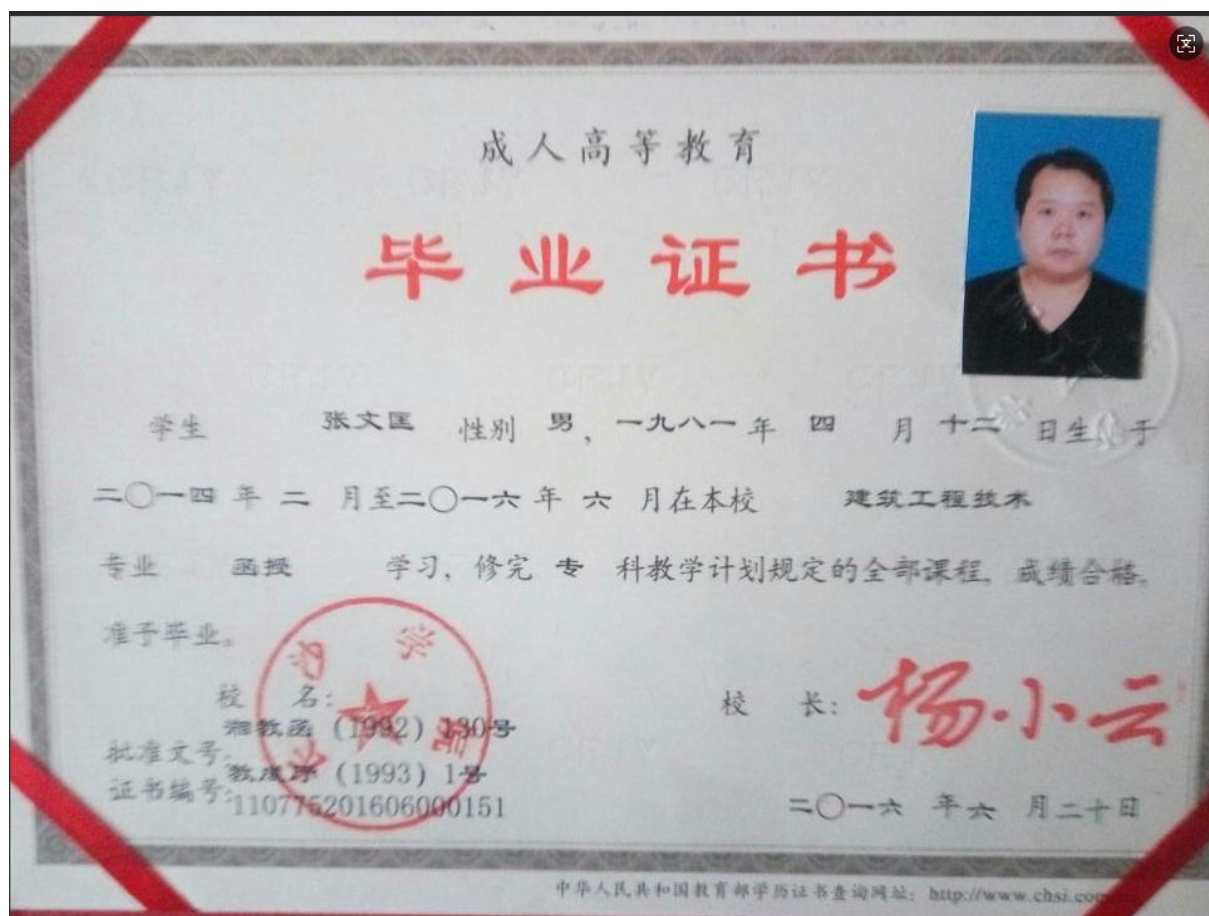 成人高等教育
毕业证书
学生 张文匡 性别 男，一九八一年 四 月 十二 日生，于
二〇一四 年 二 月至二〇一六 年 六 月在本校 建筑工程技术
专业 函授 学习，修完 专 科教学计划规定的全部课程，成绩合格，
准予毕业。
校 名：
校 长：杨小云
湘教函（1992）130号
批准文号：
教成厅（1993）1号
证书编号：
110775201606000151
二〇一六 年六 月二十日
中华人民共和国教育部学历证书查询网址：http://www.chsi.co